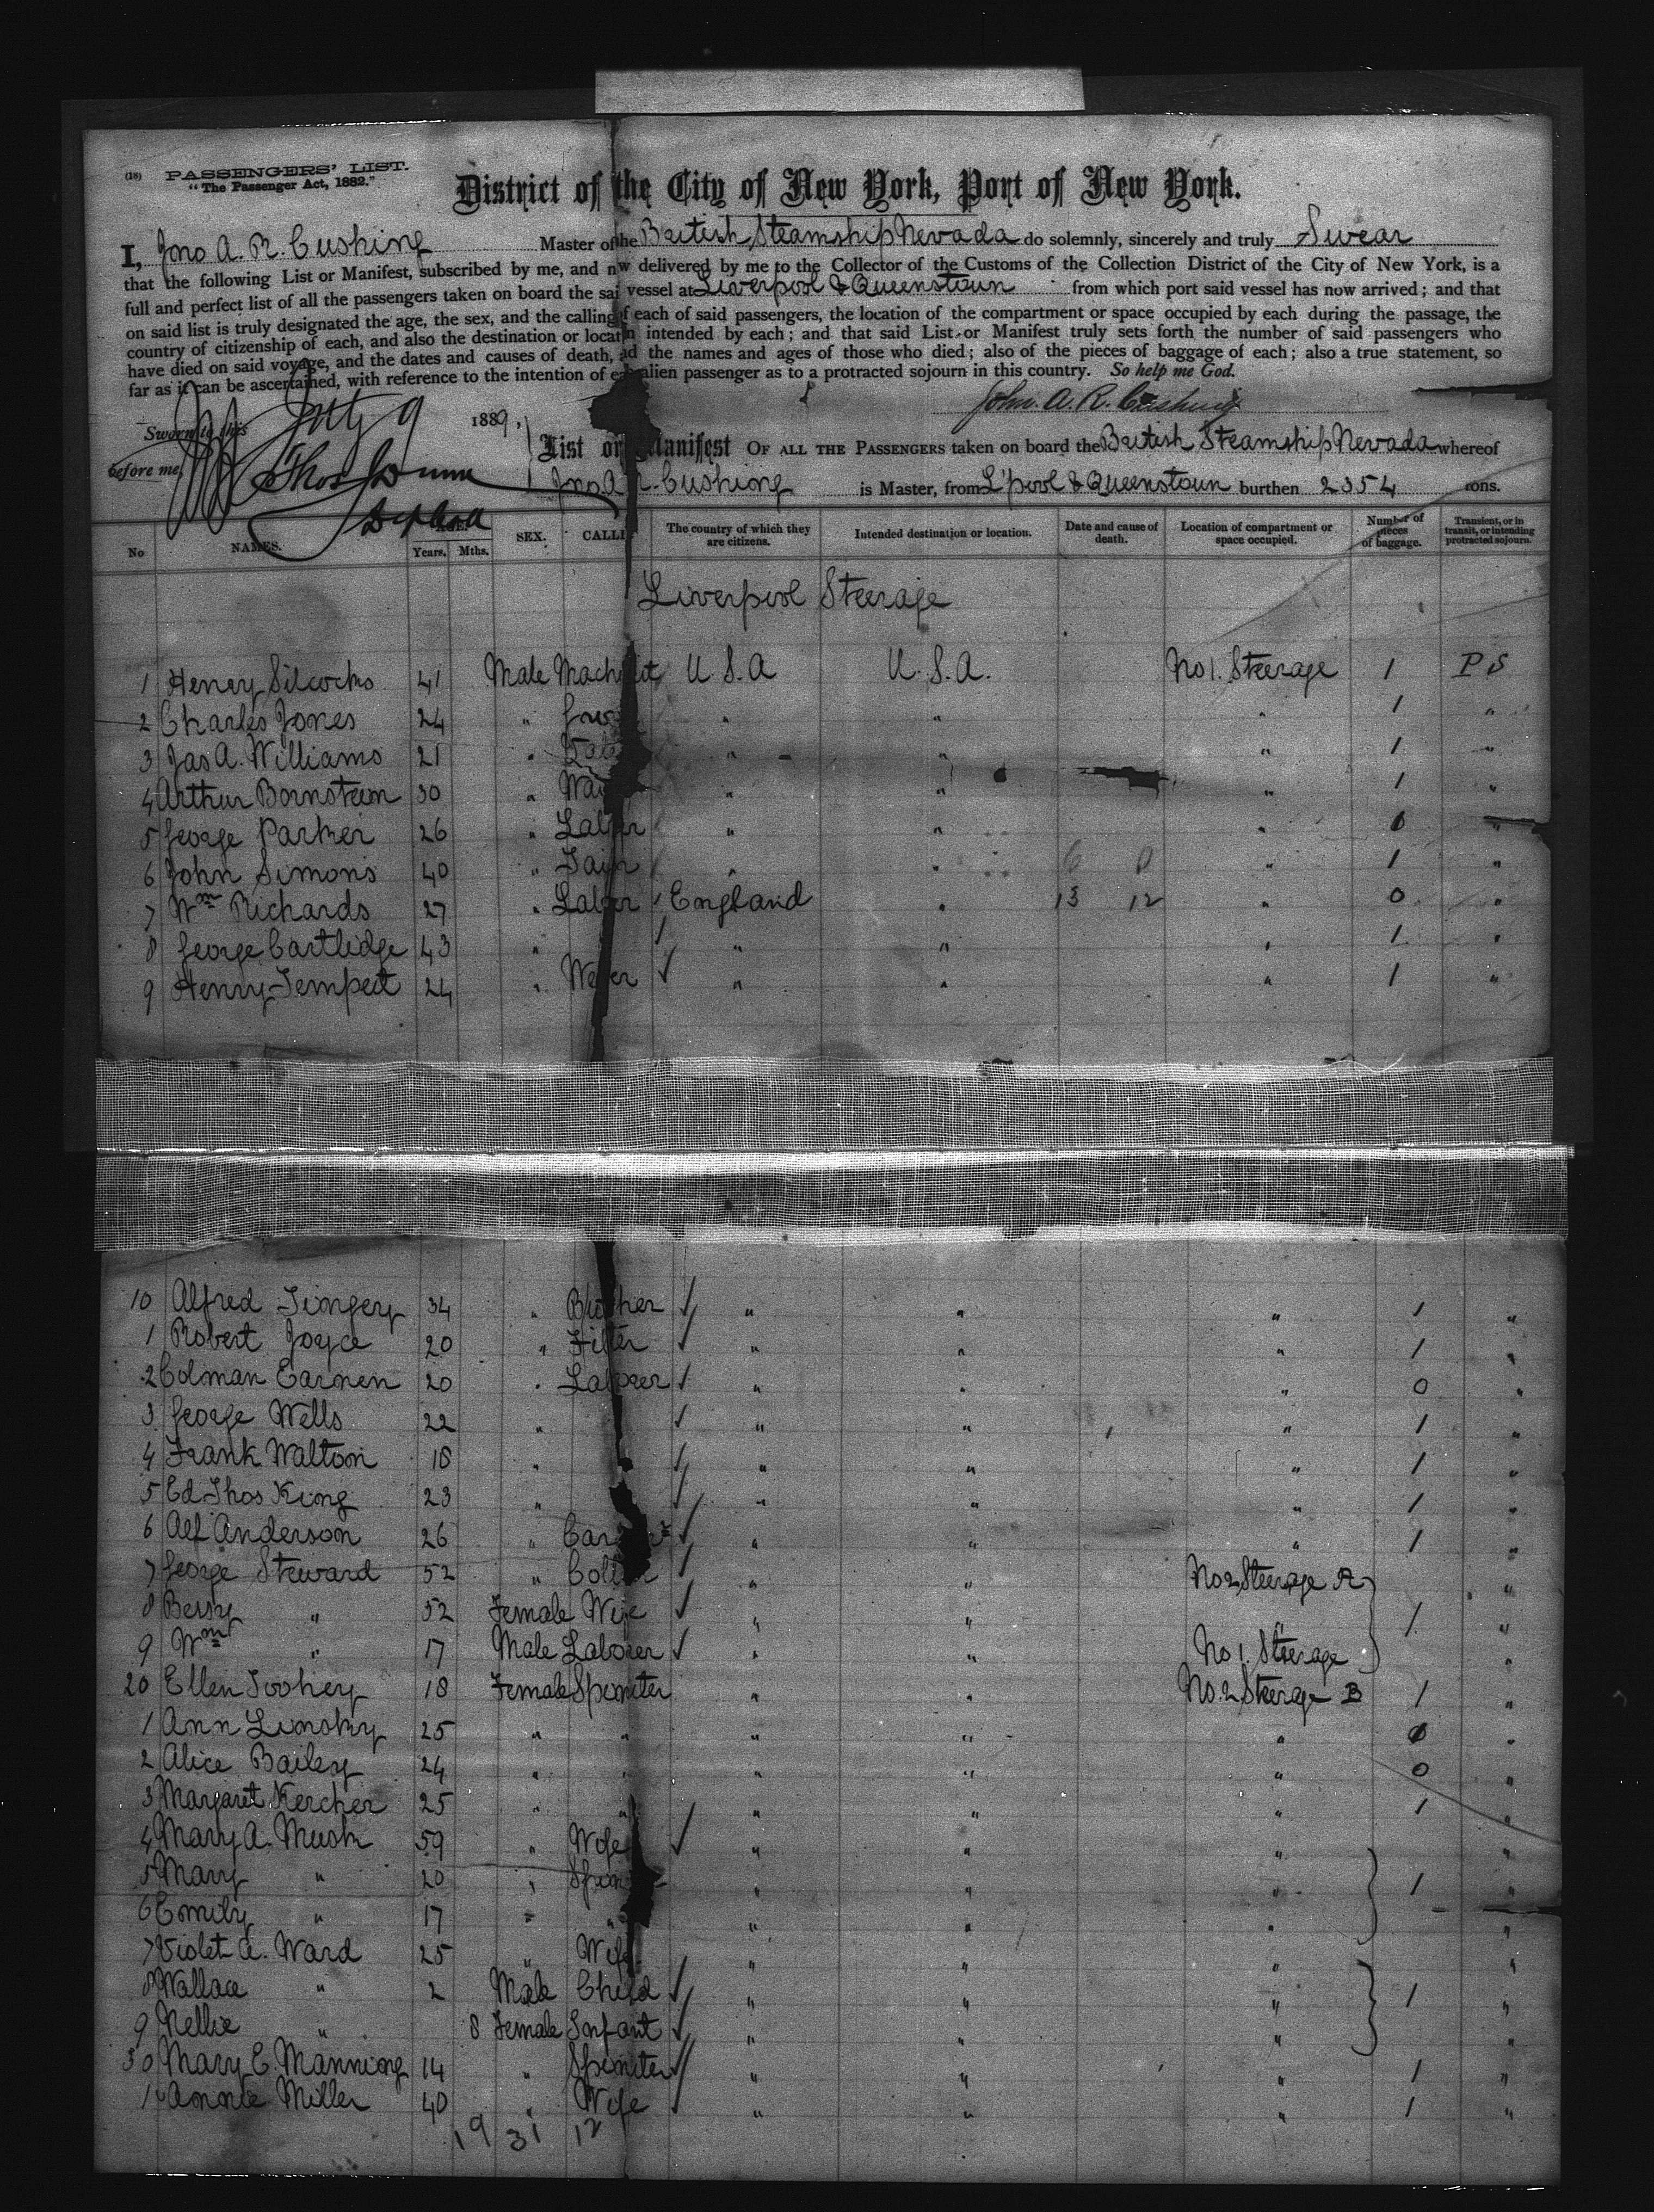 (18) PASSENGERS' LIST.
"The Passenger Act, 1882."
District of the City of New York, Port of New York.
I, Jno A. R. Cushing Master of the British Steamship Nevada do solemnly, sincerely and truly Swear
that the following List or Manifest, subscribed by me, and n w delivered by me to the Collector of the Customs of the Collection District of the City of New York, is a
full and perfect list of all the passengers taken on board the sai vessel at Liverpool & Queenstown from which port said vessel has now arrived; and that
on said list is truly designated the age, the sex, and the calling of each of said passengers, the location of the compartment or space occupied by each during the passage, the
country of citizenship of each, and also the destination or locat n intended by each; and that said List or Manifest truly sets forth the number of said passengers who
have died on said voyage, and the dates and causes of death, a d the names and ages of those who died; also of the pieces of baggage of each; also a true statement, so
far as it can be ascertained, with reference to the intention of ea alien passenger as to a protracted sojourn in this country. So help me God.
Sworn to this July 9 1889,
John. A. R. Cushing
before me
List or Manifest OF ALL THE PASSENGERS taken on board the British Steamship Nevada whereof
Jno A R. Cushing is Master, from L'pool & Queenstown burthen 2354 tons.
No NAMES. Years. Mths. SEX. CALLI The country of which they are citizens. Intended destination or location. Date and cause of death. Location of compartment or space occupied. Number of pieces of baggage. Transient, or in transit, or intending protracted sojourn.
Liverpool Steerage
1 Henry Silcocks 41 Male Mach ist U S. A U. S. A. No 1. Steerage 1 P S
2 Charles Jones 24 " " " " 1 "
3 Jas A. Williams 21 " " " " 1 "
4 Arthur Bornstein 30 " " " " 1 "
5 George Parker 26 " Lab r " " " 0 "
6 John Simons 40 " " " " 1 "
7 Wm Richards 27 " Lab r England " 13 12 " 0 "
8 George Cartledge 43 " " " " 1 "
9 Henry Tempest 24 " We er " " " 1 "
10 Alfred Tingey 34 " Butcher " " " 1 "
1 Robert Joyce 20 " Fitter " " " 1 "
2 Colman Earnen 20 " Laborer " " " 0 "
3 George Wells 22 " " " " 1 "
4 Frank Walton 18 " " " " 1 "
5 Ed Thos King 23 " " " " 1 "
6 Alf Anderson 26 " Car r " " " 1 "
7 George Steward 52 " Coll r " " No 2 Steerage A "
8 Bessy " 52 Female Wife " " " 1 "
9 Wm " 17 Male Laborer " " No 1. Steerage "
20 Ellen Toohey 18 Female Spinster " " No. 2 Steerage B 1 "
1 Ann Linsky 25 " " " " " 0 "
2 Alice Bailey 24 " " " " " 0 "
3 Margaret Kercher 25 " " " " " 1 "
4 Mary A. Mush 59 " Wife " " " "
5 Mary " 20 " Spin " " " 1 "
6 Emily " 17 " " " " " "
7 Violet A. Ward 25 " Wife " " " "
8 Wallace " 2 Male Child " " " 1 "
9 Nellie " 8 Female Infant " " " "
30 Mary E. Manning 14 " Spinster " " " 1 "
1 Annie Miller 40 " Wife " " " 1 "
19 31 12